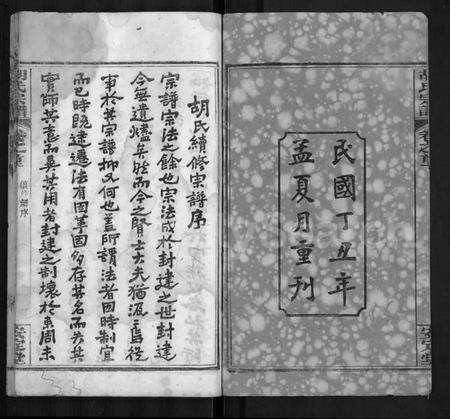 民國丁丑年
孟夏月重刊
胡氏續修宗譜序
宗譜宗法之餘也宗法成於封建之世封建
今無遺燼矣然而今之賢士大夫猶汲汲焉從
事於其宗譜抑又何也蓋所謂法者因時制宜
而已時既建遷法有因革固多存其名而去其
實師其意而異其用者封建之制壞於東周末
胡氏宗譜
卷之首
安定堂